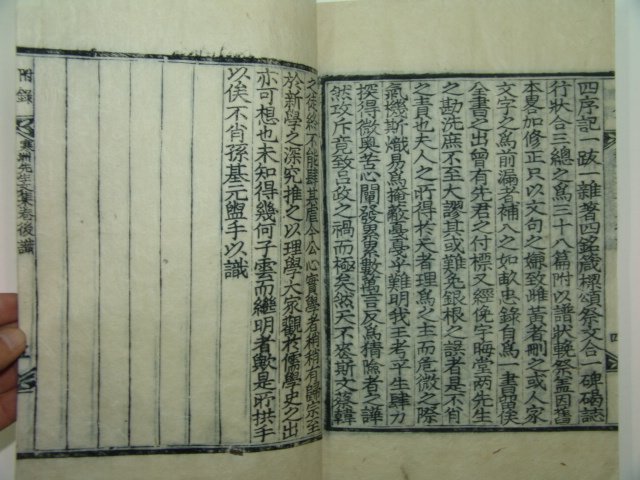 四序記一跋一雜著四銘箴櫻頌祭文合一碑碣誌
行狀合三總之爲三十八篇附以譜狀輓祭盖因舊
本畧加修正只以文句之嫌致雌黃者刪之或人家
文字之爲前漏者補入之如畝忠錄自爲一書品俟
全書之出曾有先君之付標又經俛宇晦堂兩先生
之勘洗庶不至大謬其或難免銀根之誤者是不肖
之責也夫人之所得於天者理爲之主而危微之際
氣機斯熾易爲掩蔽戞戞乎難明我王考平生肆力
探得微奧苦心闡發累累數萬言反爲猜險者之譁
然攻斥竟致呂政之禍而極矣然天不喪斯文複韓
之徒終不能肆其虐今公心實學者稍稍有歸宗至
於新學之深究推之以理學大家觀於儒學史之出
亦可想也未知得幾何子雲而繼明者歟是所拱手
以俟不肖孫基元盥手以識
附錄
寒洲先生文集卷後識
四